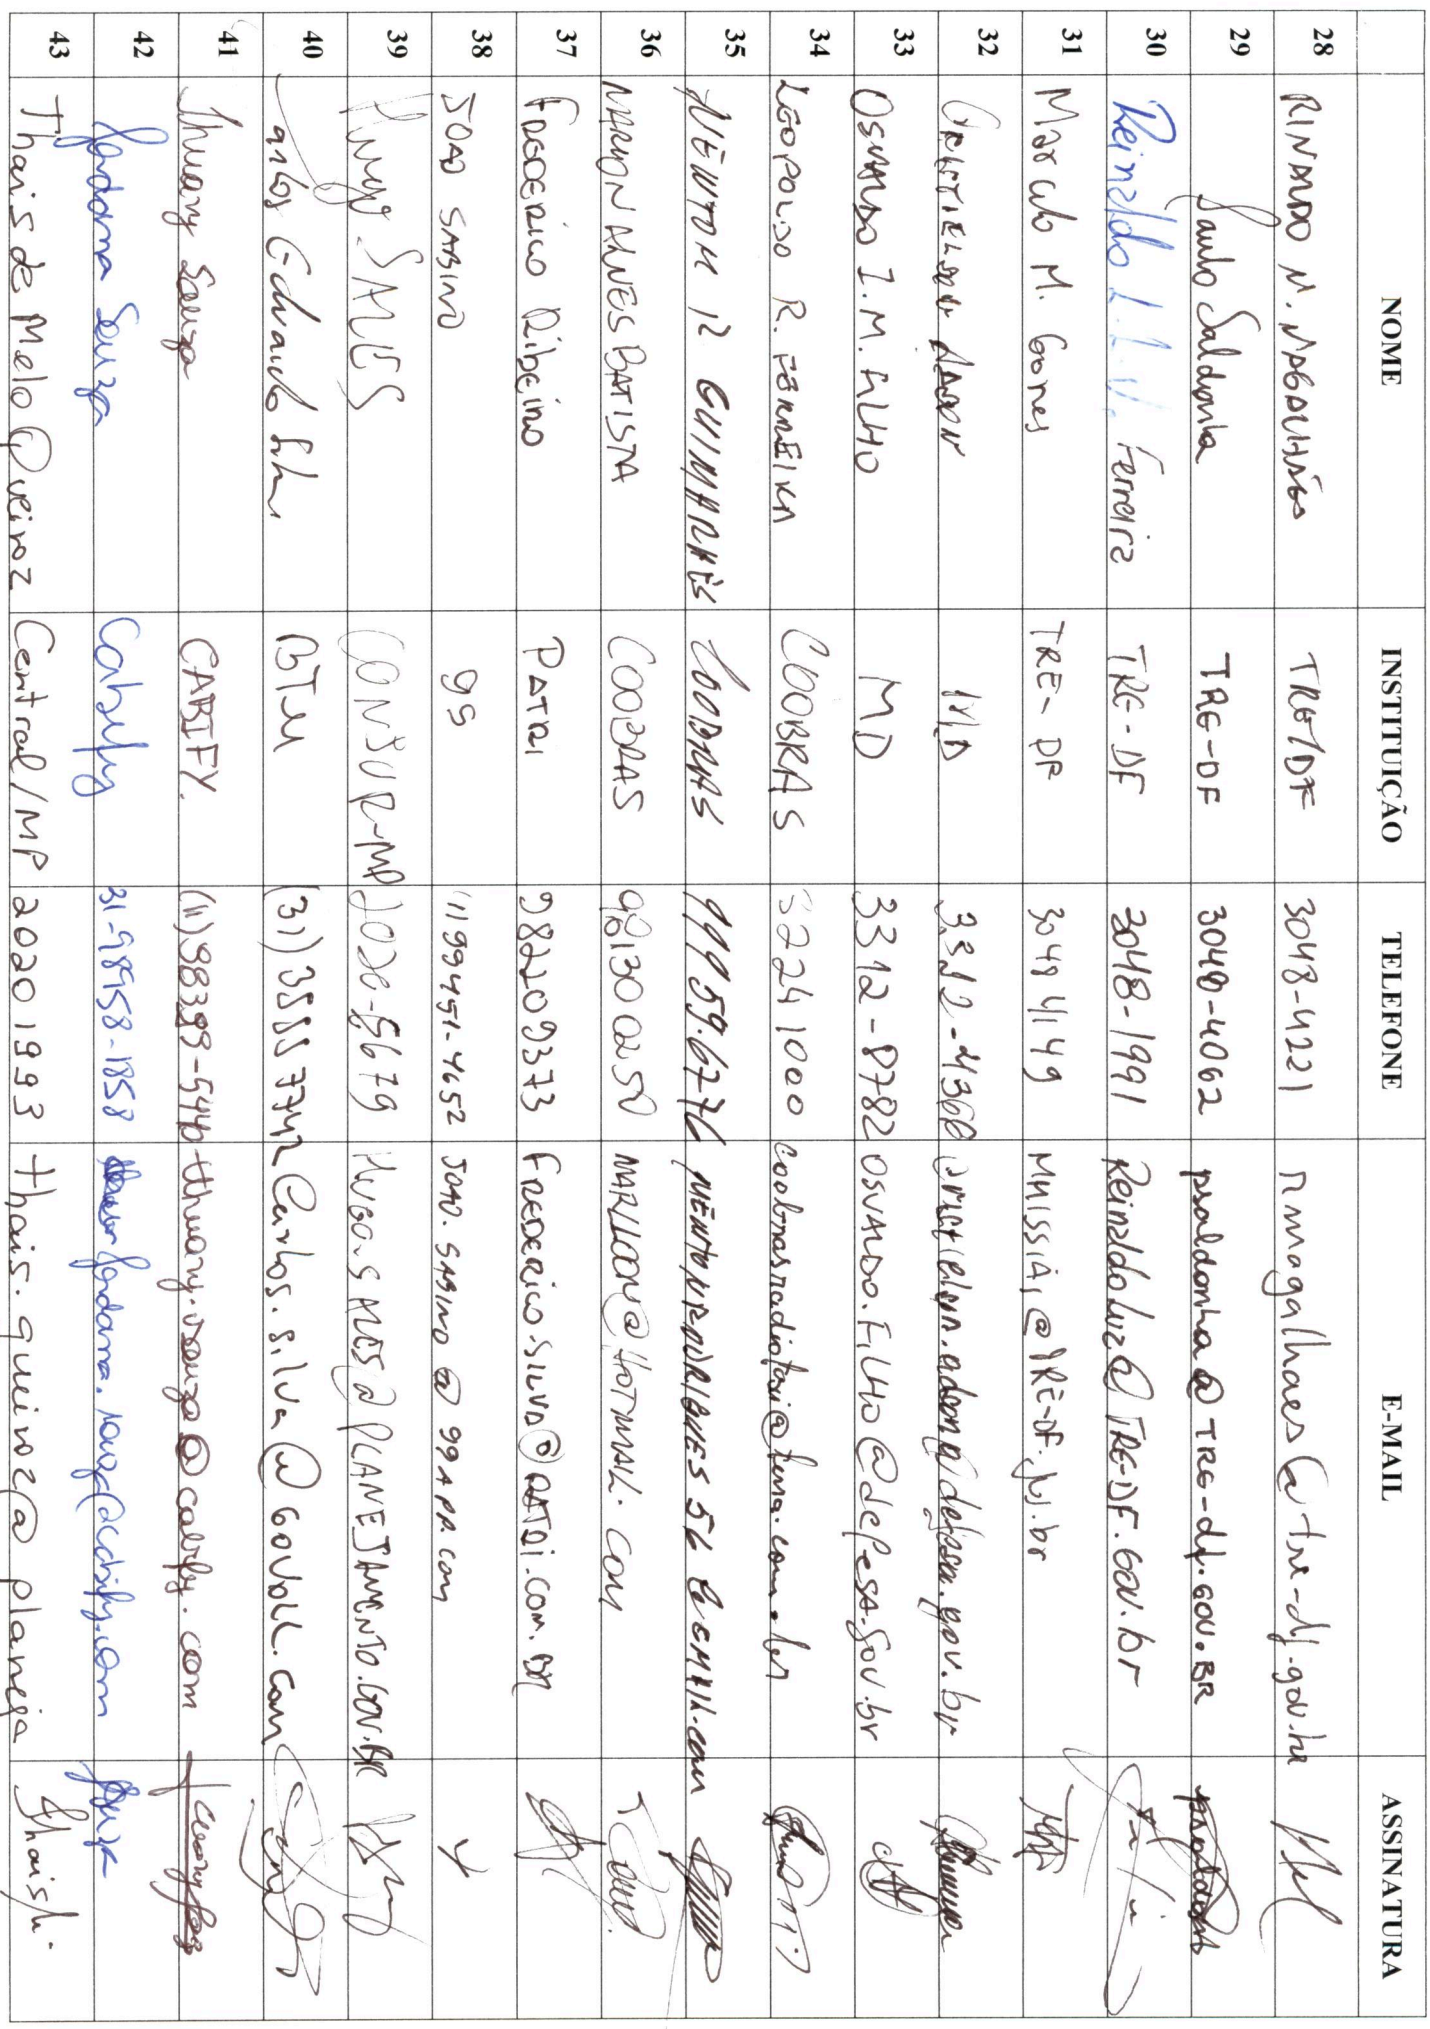 NOME INSTITUIÇÃO TELEFONE E-MAIL ASSINATURA
28 RINALDO N. MAGALHÃES TRE/DF 3048-4221 rnmagalhaes@tre-df.gov.br
29 Paulo Saldanha TRE-DF 3048-4062 psaldanha@TRE-df.GOV.BR
30 Reinaldo L. L. V. Ferreira TRE-DF 3048-1991 Reinaldoluz@TRE-DF.GOV.br
31 Marcelo M. Gomes TRE-DF 3048 4149 @TRE-DF.jus.br
32 MD 3312-4360
33 OSVALDO I. M. FILHO MD 3312-8782 OSVALDO.FILHO@defesa.gov.br
34 LEOPOLDO R. FERREIRA COOBRAS 32241000
35 NEWTON R GUIMARÃES COOBRAS 99959.6776 NEWTONRODRIGUES56@GMAIL.com
36 MARLON ALVES BATISTA COOBRAS 981300250 MARLLOON@HOTMAIL.COM
37 FREDERICO Ribeiro PATRI 982209373 FREDERICO.SILVA@PATRI.COM.BR
38 JOAO SABINO 99 (11)99451-4652 JOAO.SABINO@99APP.com
39 Hugo SALES CONJUR-MP 2020-5679 HUGO.SALES@PLANEJAMENTO.GOV.BR
40 Carlos Eduardo Silva BTM (31)35557742 Carlos.silva@GOVOLL.com
41 Thuany Souza CABIFY. (11)98399-5440 thuany.souza@cabify.com
42 Jordana Souza Cabify 31-98958-1858 jordana.souza@cabify.com
43 Thais de Melo Queiroz Central/MP 20201993 thais.queiroz@planeja